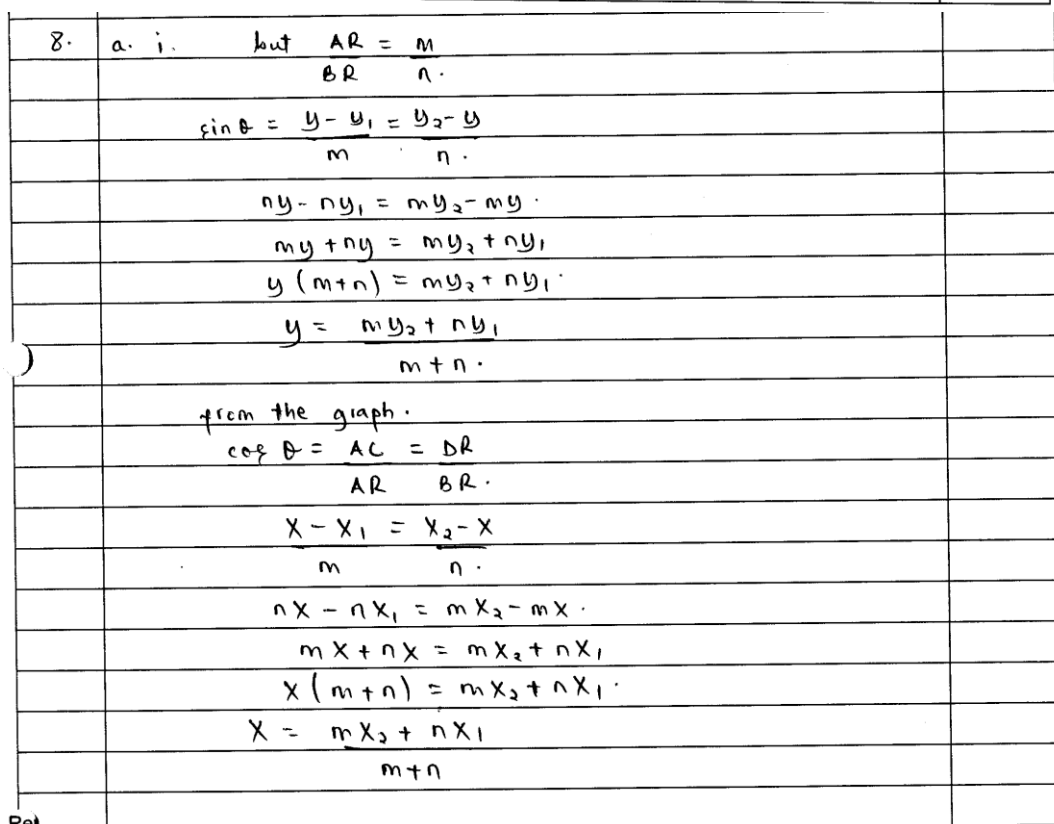 8. a. i. but AR = m
BR n.
sin θ = y - y₁ = y₂ - y
m n.
ny - ny₁ = my₂ - my.
my + ny = my₂ + ny₁
y (m+n) = my₂ + ny₁.
y = my₂ + ny₁
m + n.
from the graph.
cos θ = AC = DR
AR BR.
X - X₁ = X₂ - X
m n.
nX - nX₁ = mX₂ - mX.
mX + nX = mX₂ + nX₁
X (m+n) = mX₂ + nX₁.
X = mX₂ + nX₁
m+n